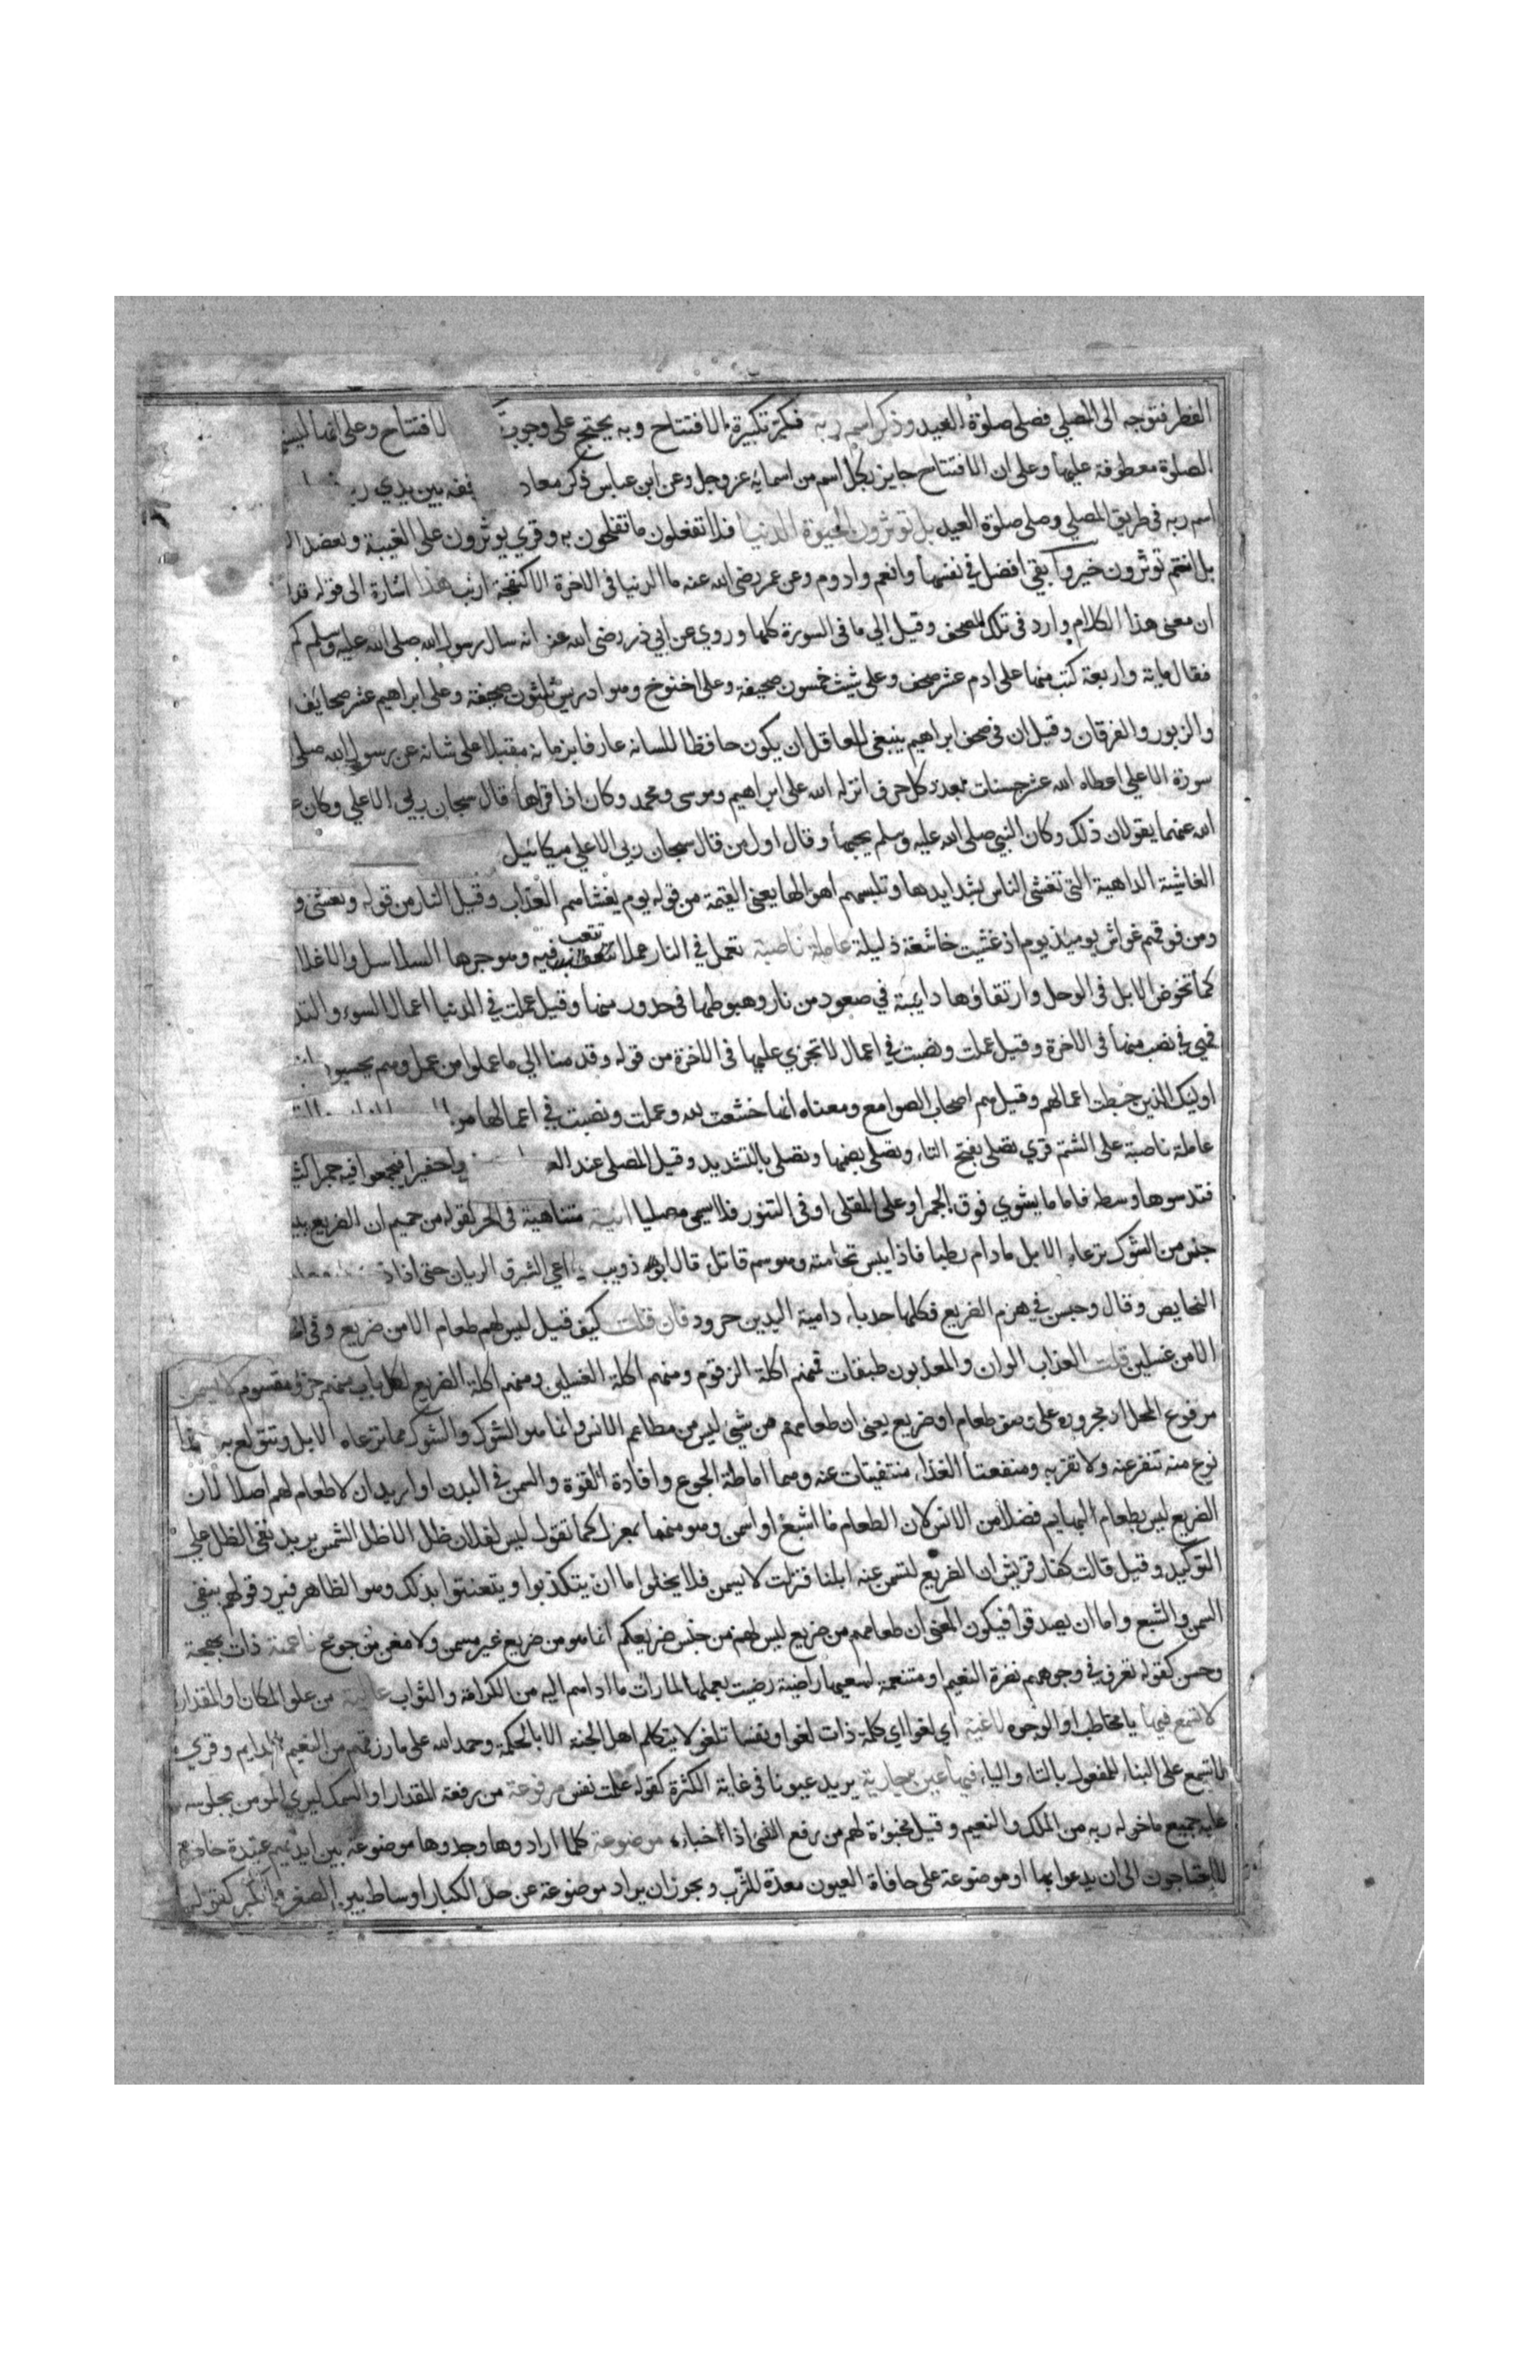 الفطر فتوجه الى المصلى فصلى صلوة العيد وذكر اسم ربه فكبر تكبيرة الافتتاح وبه يحتج على وجوب الافتتاح وعلى انها ليست
الصلوة معطوفة عليها وعلى ان الافتتاح جايز بكل اسم من اسمايه عز وجل وعن ابن عباس ذكر معاد بين يدي
اسم ربه فى طريق المصلى وصلى صلوة العيد بل توثرون الحيوة الدنيا فلا تفعلون ما تفلحون به وقري يوثرون على الغيبة وبعضد
بل انتم توثرون خير وابقي افضل في نفسها وانعم وادوم وعن عمر رضى الله عنه ما الدنيا فى الاخرة الا كنفجة ارنب هذا اشارة الى قوله قد
ان معنى هذا الكلام وارد فى تلك الصحف وقيل الى ما فى السورة كلها وروي عن ابي ذر رضى الله عنه انه سال رسول الله صلى الله عليه وسلم كم
فقال ماية واربعة كتب منها على ادم عشر صحف وعلى شيث خمسون صحيفة وعلى اخنوخ وهو ادريس ثلثون صحيفة وعلى ابراهيم عشر صحايف
والزبور والفرقان وقيل ان فى صحف ابراهيم ينبغى للعاقل ان يكون حافظا للسانه عارفا بزمانه مقبلا على شانه عن رسول الله صلى
سورة الاعلي اعطاه الله عشر حسنات بعدد كل حرف انزله الله على ابراهيم وموسى ومحمد وكان اذا قراها قال سبحان ربي الاعلي وكان
الله عنهما يقولان ذلك وكان النبي صلى الله عليه وسلم يحبها وقال اول من قال سبحان ربى الاعلى ميكائيل
الغاشية الداهية التى تغشى الناس بشدايدها وتلبسهم اهوالها يعنى القيمة من قوله يوم يغشاهم العذاب وقيل النار من قوله وتغشى و
ومن فوقهم غواش يوميذ يوم اذ غشيت خاشعة ذليلة عاملة ناصبة تعمل في النار عملا تتعب فيه وهو جرها السلاسل والاغلا
كما تخوض الابل فى الوحل وارتقاؤها دايبة في صعود من نار وهبوطها فى حدور منها وقيل عملت في الدنيا اعمال السوء والتذ
فهي في نصب منها فى الاخرة وقيل عملت ونصبت في اعمال لا تجزي عليها فى الاخرة من قوله وقدمنا الي ما عملوا من عمل وهم يحسبون
اوليك الذين حبطت اعمالهم وقيل هم اصحاب الصوامع ومعناه انها خشعت لله وعملت ونصبت في اعمالها من
عاملة ناصبة على الشتم قري تصلى بفتح التاء وتصلى بضمها وتصلى بالتشديد وقيل المصلى عند الع واحفيرا فيجمعوا فيه جمرا كثي
فتدسوها وسطه فاما ما يشوي فوق الجمر او على المقلى او فى التنور فلا يسمى مصليا انية متناهية فى الحر كقوله من حميم ان الضريع يبيس
جنس من الشوك ترعاه الابل مادام رطبا فاذا يبس تحامته وهو سم قاتل قال ابو ذويب راعي الشبرق الريان حتى اذا
النحايص وقال وحبسن في هزم الضريع فكلها حدباء دامية اليدين حرود فان قلت كيف قيل ليس لهم طعام الا من ضريع وفى
الا من غسلين قلت العذاب الوان والمعذبون طبقات فمنهم اكلة الزقوم ومنهم اكلة الغسلين ومنهم اكلة الضريع لكل باب منهم جزؤ مقسوم لا يسمن
مرفوع المحل او مجروره على وصف طعام او ضريع يعنى ان طعامهم من شي ليس من مطاعم الانس وانما هو الشوك والشوك مما ترعاه الابل وتتولع به
نوع منه تنفر عنه ولا تقربه ومنفعتا الغذاء منتفيتان عنه وهما اماطة الجوع وافادة القوة والسمن في البدن او اريد ان لا طعام لهم اصلا لان
الضريع ليس بطعام البهايم فضلا من الانس لان الطعام ما اشبع او اسمن وهو منهما بمعزل كما تقول ليس لفلان ظل الا ظل الشمس يريد نفى الظل على
التوكيد وقيل قالت كفار قريش ان الضريع لتسمن عنه ابلنا فنزلت لا يسمن فلا يخلوا اما ان يتكذبوا ويتعنتوا بذلك وهو الظاهر فيرد قولهم بنفي
السمن والشبع واما ان يصدقوا فيكون المعنى ان طعامهم من ضريع ليس من جنس ضريعكم انما هو من ضريع غير مسمن ولا مغن من جوع ناعمة ذات بهجة
وحسن كقوله تعرف في وجوههم نضرة النعيم او متنعمة لسعيها راضية رضيت بعملها لما رات ما اداهم اليه من الكرامة والثواب عالية من علو المكان والمقدار
لا تسمع فيها يا مخاطب او الوجوه لاغية اي لغوا اي كلمة ذات لغو او نفسا تلغو لا يتكلم اهل الجنة الا بالحكمة وحمد الله على ما رزقهم من النعيم الدايم وقري
لا تسمع على البناء للمفعول بالتاء والياء فيها عين جارية يريد عيونا فى غاية الكثرة كقوله علمت نفس مرفوعة من رفعة المقدار او السمك ليري المومن بجلوسه
عليه جميع ما خوله ربه من الملك والنعيم وقيل مخبوءة لهم من رفع الشي اذا خباءه موضوعة كلما ارادوها وجدوها موضوعة بين ايديهم عتيدة حاضرة
لا يحتاجون الى ان يدعوا بها او موضوعة على حافاة العيون معدة للشرب ويجوز ان يراد موضوعة عن حد الكبار اوساط بين الصغر والكبر كقوله